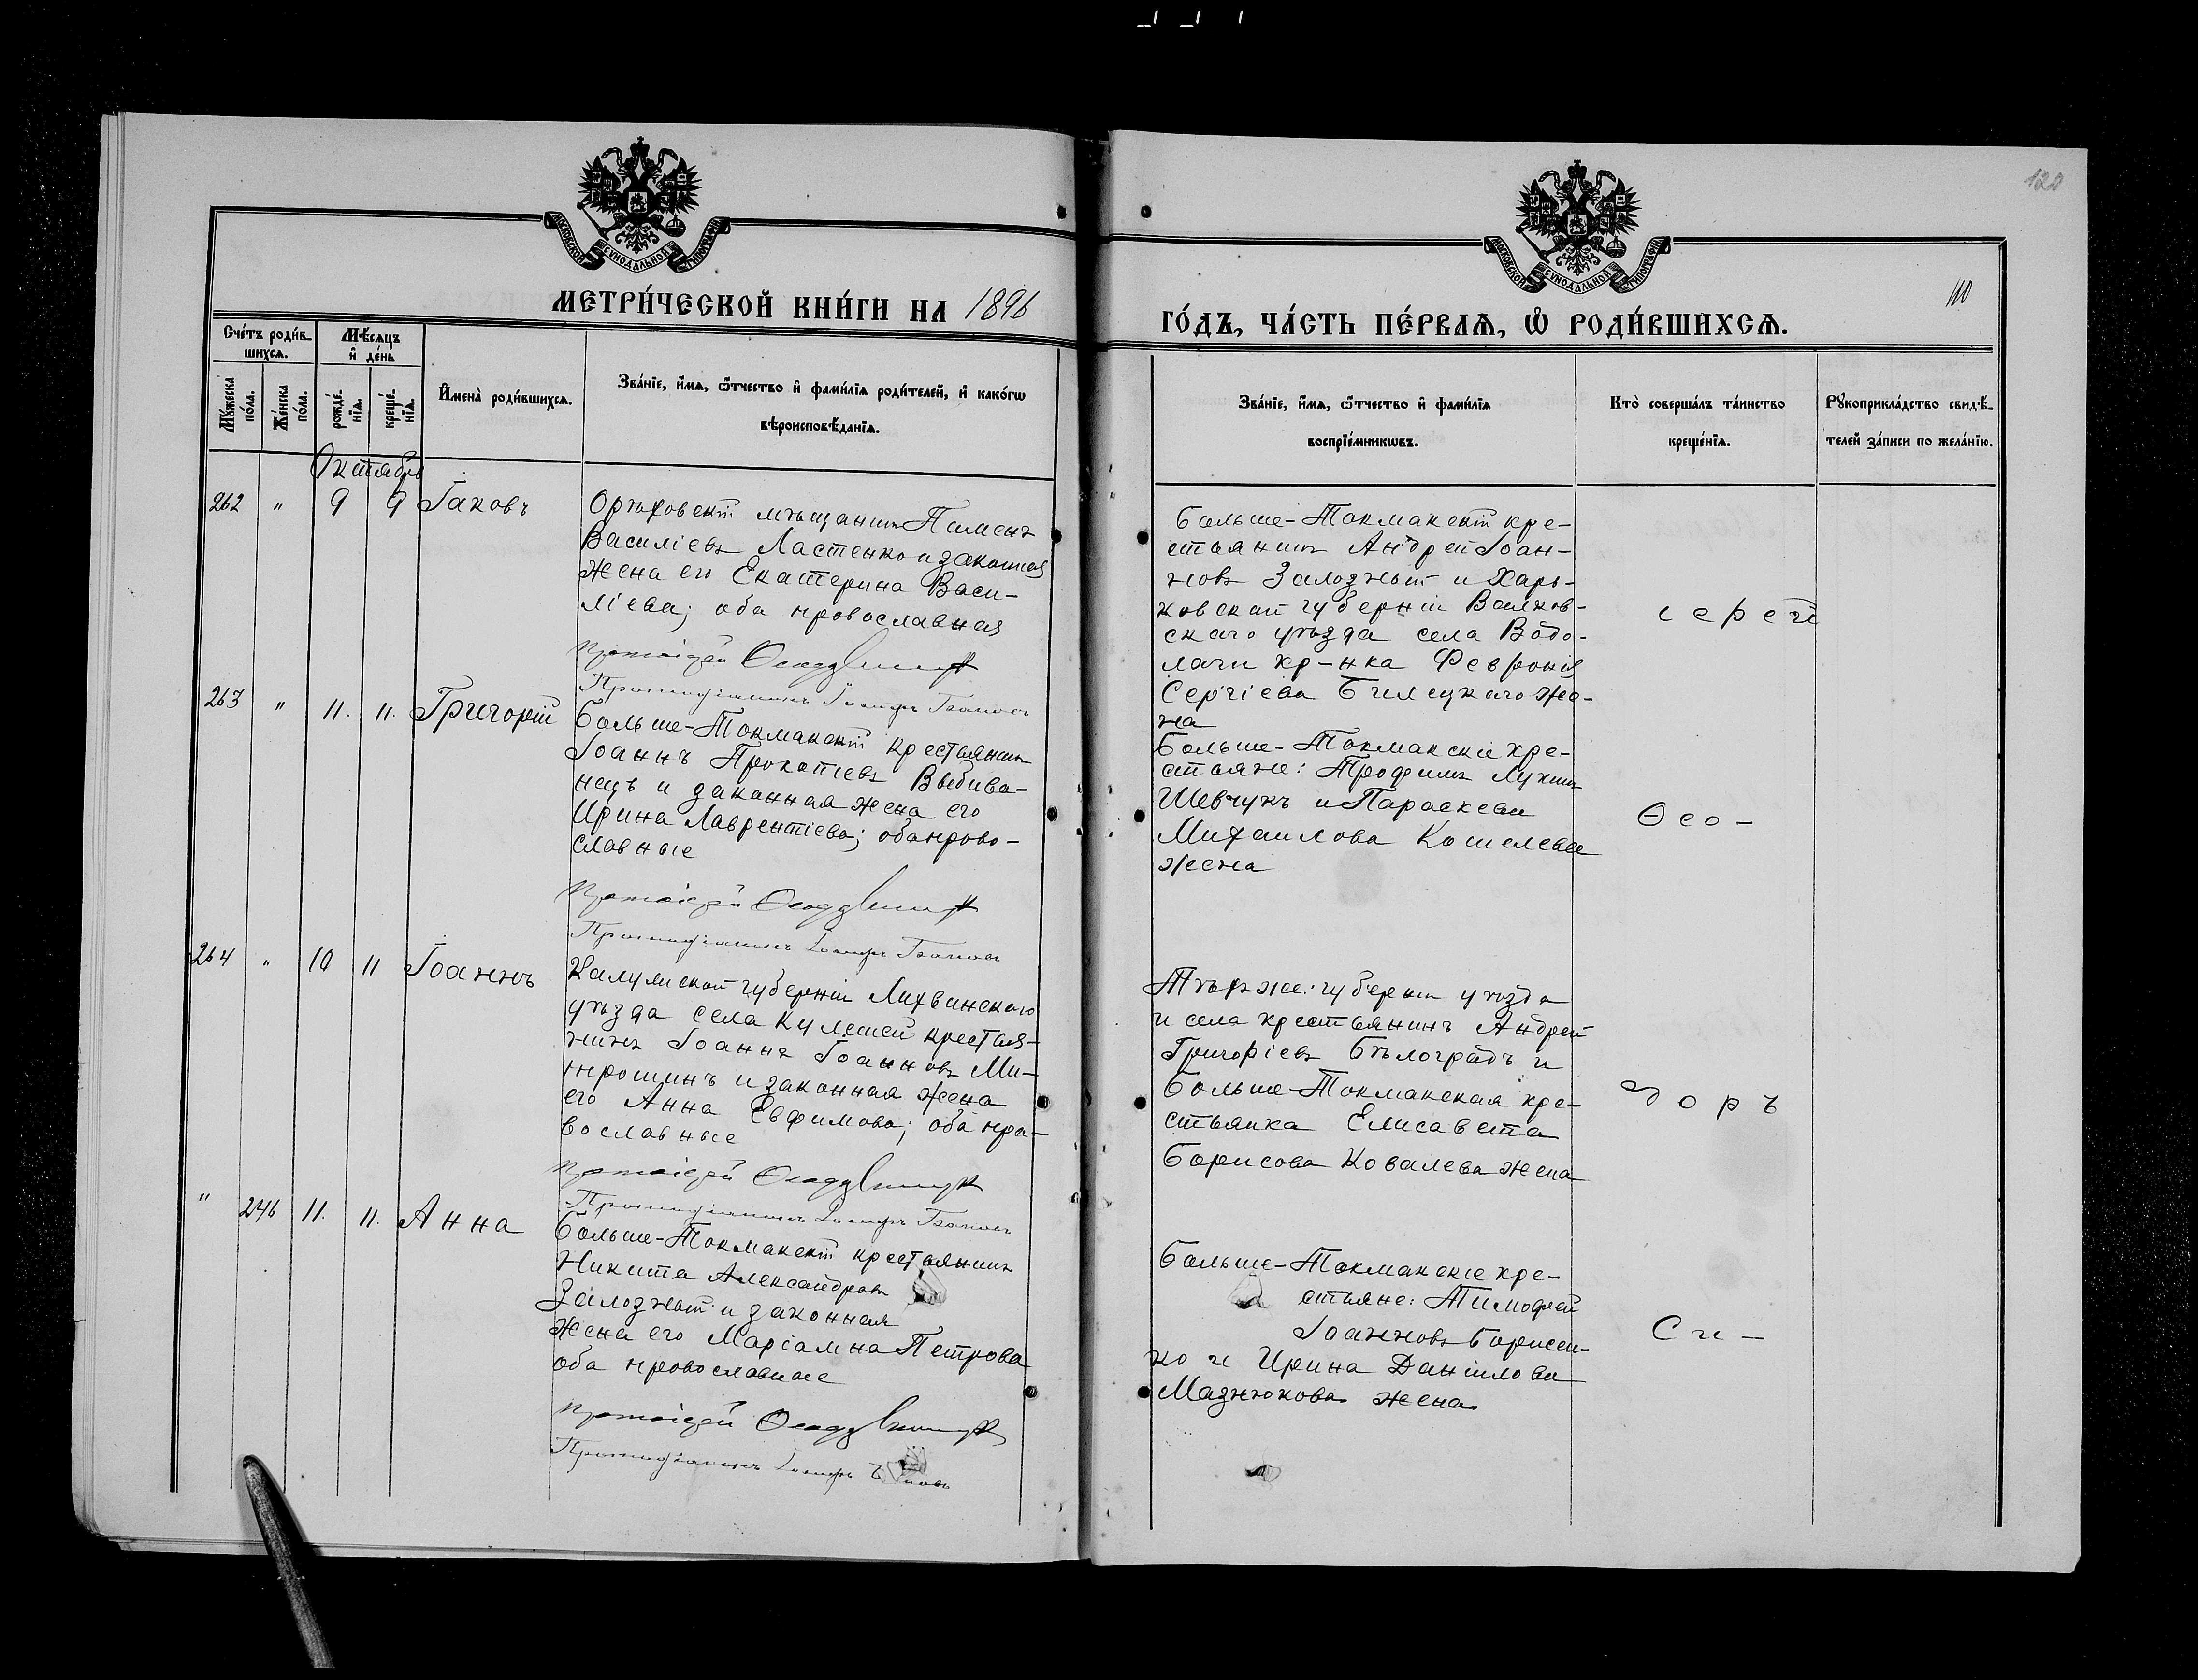 120
110
МОСКОВСКОЙ СУНОДАЛЬНОЙ ТИПОГРАФІИ
МОСКОВСКОЙ СУНОДАЛЬНОЙ ТИПОГРАФІИ
МЕТРИ́ЧЕСКОЙ КНИ́ГИ НА 1896
ГО́ДЪ, ЧА́СТЬ ПЕ́РВАѦ, Ѡ҆ РОДИ́ВШИХСѦ.
Сче́тъ роди́в-
шихсѧ.
Мѣ́сѧцъ
и҆ де́нь
Мꙋ́жеска
по́ла.
Же́нска
по́ла.
рожде́-
нїѧ.
креще́-
нїѧ.
И҆мена̀ роди́вшихсѧ.
Зва́нїе, и҆́мѧ, ѻ҆́тчество и҆ фами́лїѧ роди́телей, и҆ како́гѡ
вѣроисповѣ́данїѧ.
Зва́нїе, и҆́мѧ, ѻ҆́тчество и҆ фами́лїѧ
воспрїе́мникѡвъ.
Кто̀ соверша́лъ та́инство
креще́нїѧ.
Рꙋкоприкла́дство свидѣ́-
телей за́писи по жела́нїю.
Октябрь
262 " 9 9 Іаковъ
Орѣховскій мѣщанинъ Пименъ
Василіевъ Ластенко и законная
жена его Екатерина Васи-
ліева; оба православныя
Протоіерей
Протодіаконъ
Больше-Токмакскій кре-
стьянинъ Андрей Іоан-
новъ Залозный и Харь-
ковской губерніи Валков-
скаго уѣзда села Водо-
лаги кр-нка Февронія
Сергіева Билецкаго же-
на
іерей
263 " 11. 11. Григорій
Больше-Токмакскій крестьянинъ
Іоаннъ Прокопіевъ Выбива-
нецъ и законная жена его
Ирина Лаврентіева; оба право-
славные
Протоіерей
Протодіаконъ
Больше-Токмакскіе кре-
стьяне: Трофимъ Лукинъ
Шевчукъ и Параскева
Михаилова Кошелева
жена
Ѳео-
264 " 10 11 Іоаннъ
Калужской губерніи Лихвинскаго
уѣзда села Кулешей крестья-
нинъ Іоаннъ Іоанновъ Ми-
трошинъ и законная жена
его Анна Евфимова; оба пра-
вославные
Протоіерей
Протодіаконъ
Тѣхъ же: губерніи уѣзда
и села крестьянинъ Андрей
Григоріевъ Бѣлоградъ и
Больше-Токмакская кре-
стьянка Елисавета
Борисова Ковалева жена
доръ
" 246 11. 11. Анна
Больше-Токмакскій крестьянинъ
Никита Александровъ
Залозный и законная
жена его Маріамна Петрова
оба православные
Протоіерей
Протодіаконъ
Больше-Токмакскіе кре-
стьяне: Тимофей
Іоанновъ Борисен-
ко и Ирина Даніилова
Мазнюкова жена
Си-